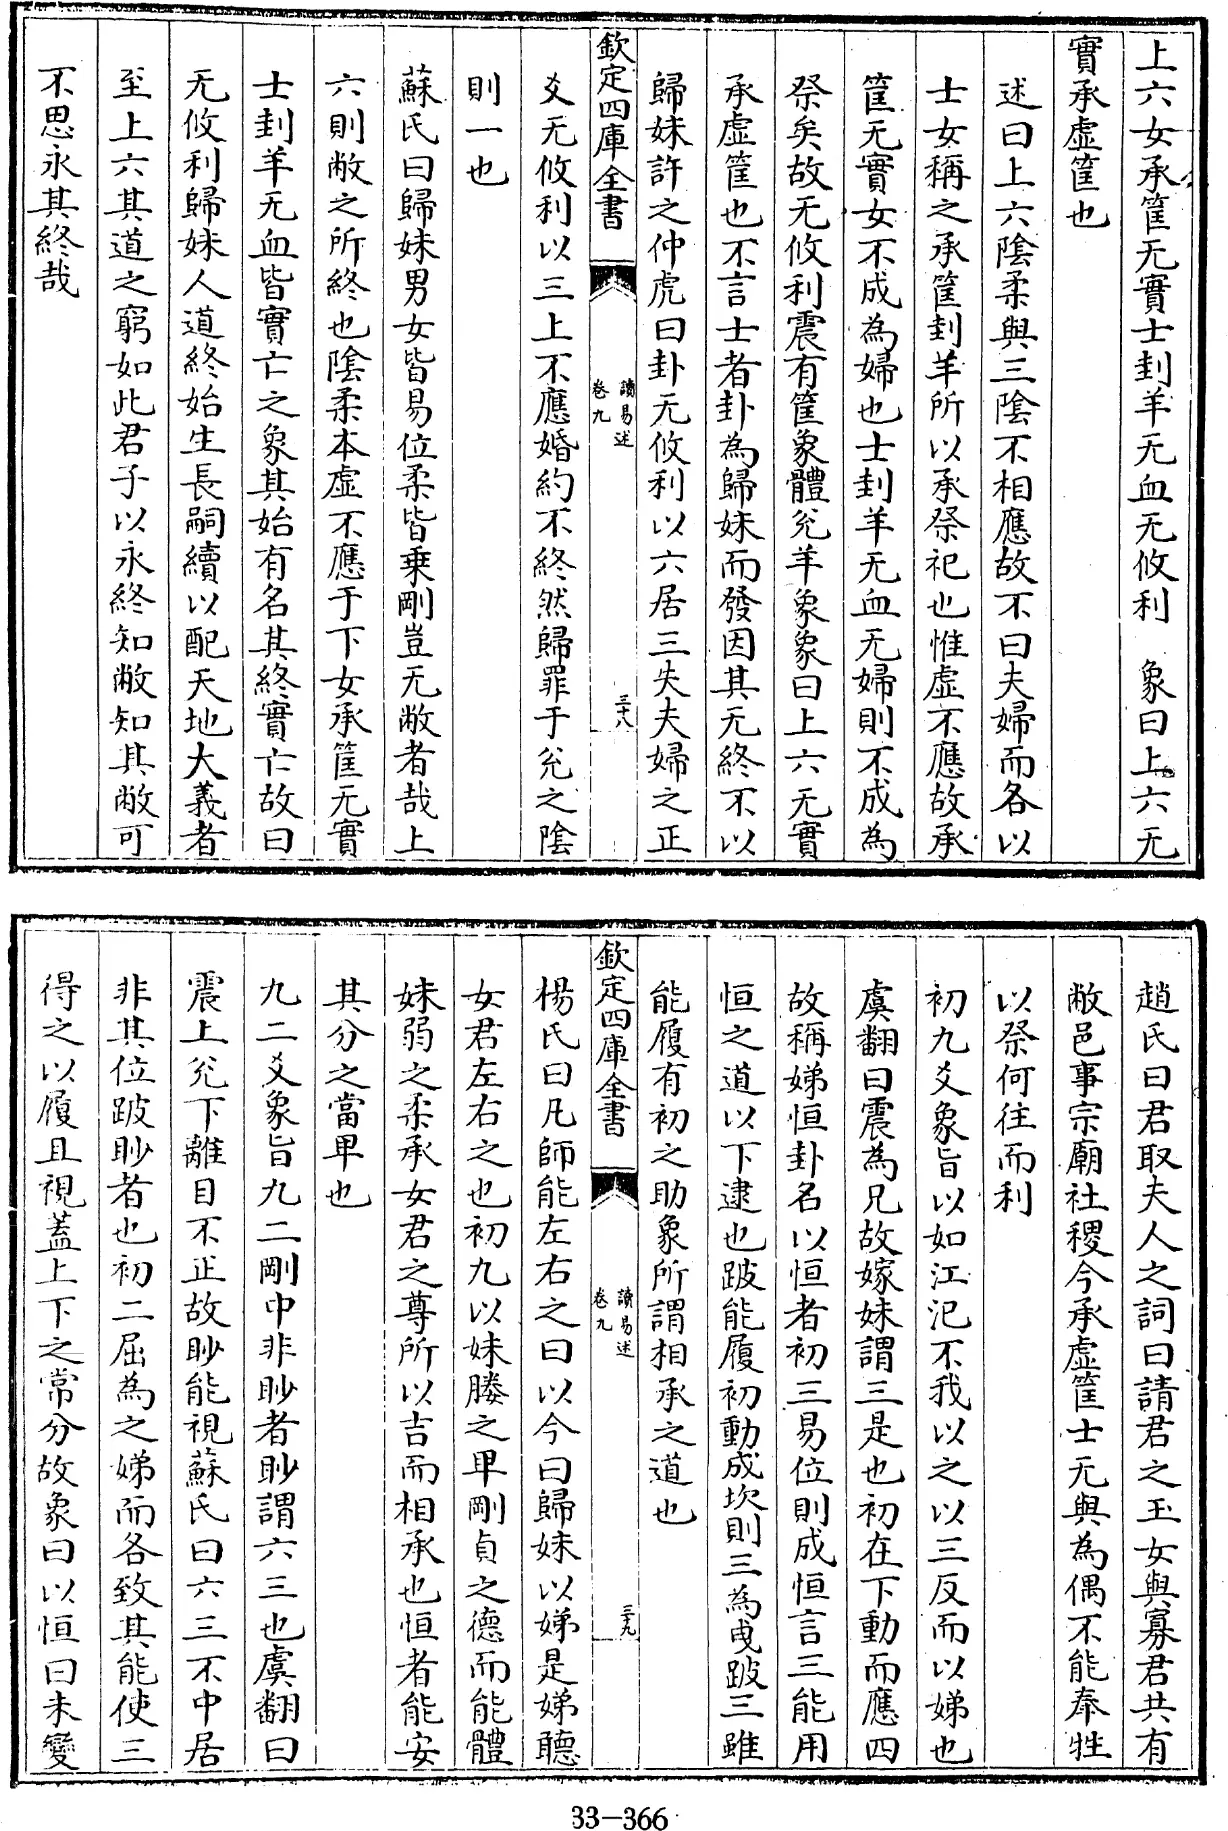 上六女承筐无實士刲羊无血无攸利　象曰上六无
實承虛筐也
述曰上六陰柔與三陰不相應故不曰夫婦而各以
士女稱之承筐刲羊所以承祭祀也惟虛不應故承
筐无實女不成為婦也士刲羊无血无婦則不成為
祭矣故无攸利震有筐象體兊羊象象曰上六无實
承虛筐也不言士者卦為歸妹而發因其无終不以
歸妹許之仲虎曰卦无攸利以六居三失夫婦之正
欽定四庫全書
讀易述
卷九
三十八
爻无攸利以三上不應婚約不終然歸罪于兊之陰
則一也
蘇氏曰歸妹男女皆易位柔皆乗剛豈无敝者哉上
六則敝之所終也陰柔本虛不應于下女承筐无實
士刲羊无血皆實亡之象其始有名其終實亡故曰
无攸利歸妹人道終始生長嗣續以配天地大義者
至上六其道之窮如此君子以永終知敝知其敝可
不思永其終哉
趙氏曰君取夫人之詞曰請君之玉女與寡君共有
敝邑事宗廟社稷今承虛筐士无與為偶不能奉牲
以祭何往而利
初九爻象旨以如江汜不我以之以三反而以娣也
虞翻曰震為兄故嫁妹謂三是也初在下動而應四
故稱娣恒卦名以恒者初三易位則成恒言三能用
恒之道以下逮也跛能履初動成坎則三為曳跛三雖
能履有初之助象所謂相承之道也
欽定四庫全書
讀易述
卷九
三九
楊氏曰凡師能左右之曰以今曰歸妹以娣是娣聽
女君左右之也初九以妹媵之卑剛貞之德而能體
妹弱之柔承女君之尊所以吉而相承也恒者能安
其分之當卑也
九二爻象旨九二剛中非眇者眇謂六三也虞翻曰
震上兊下離目不正故眇能視蘇氏曰六三不中居
非其位跛眇者也初二屈為之娣而各致其能使三
得之以履且視蓋上下之常分故象曰以恒曰未變
33-366